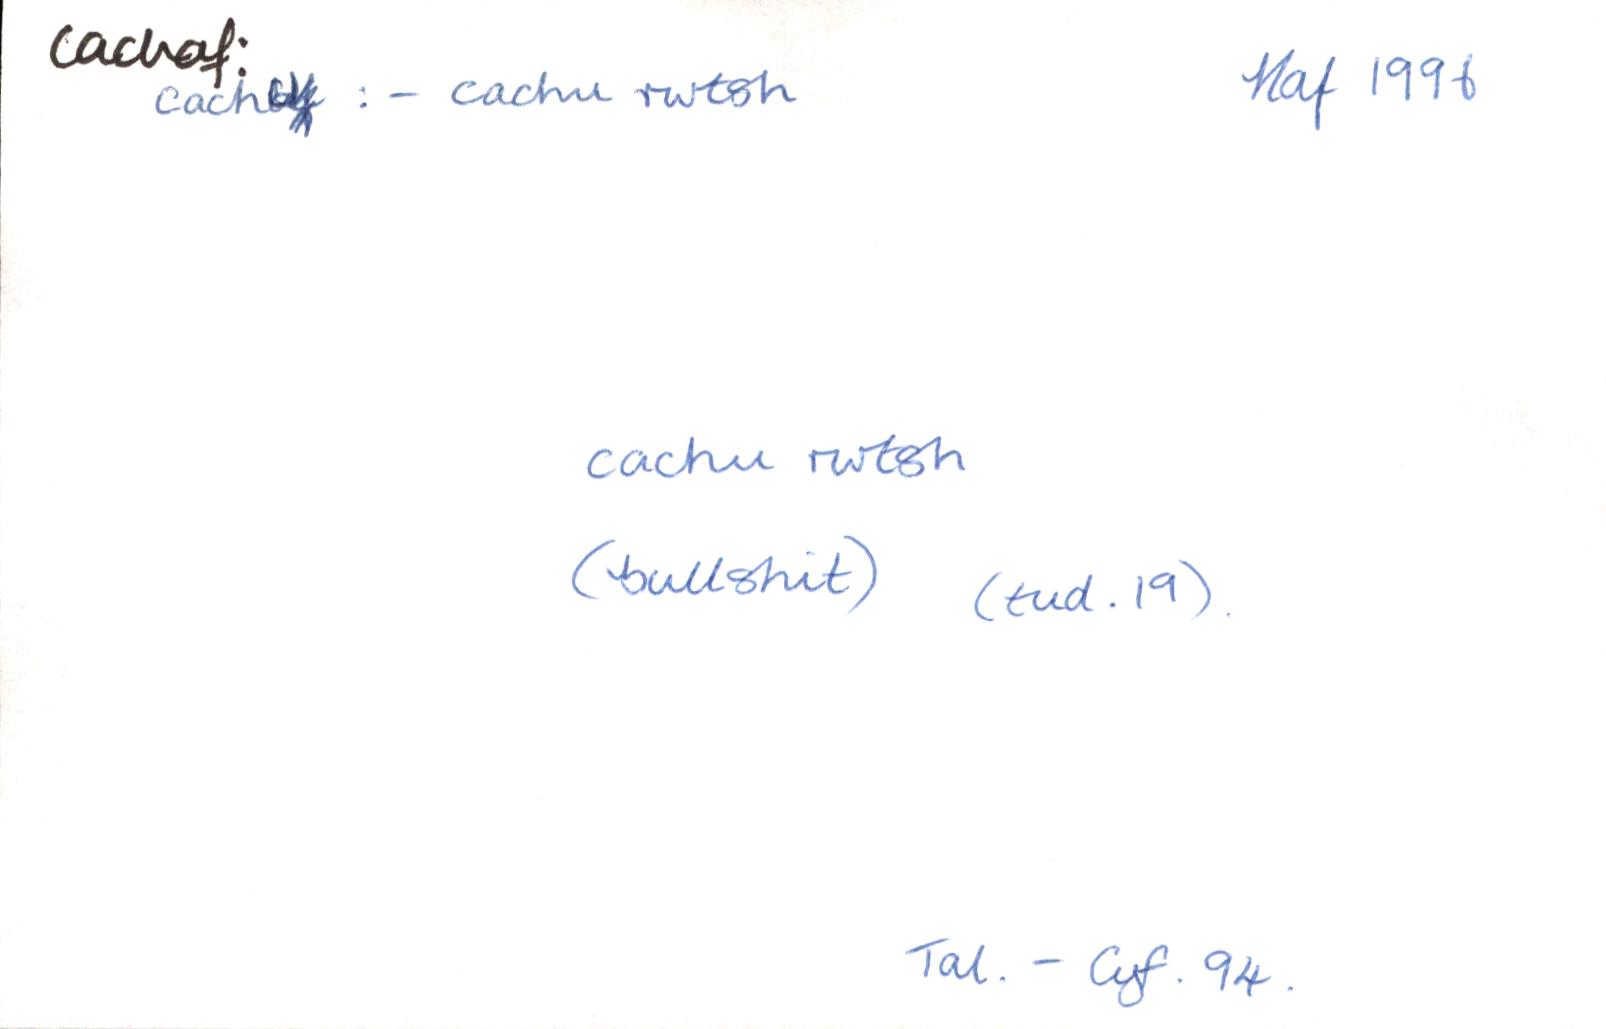 cachaf:
cachaf : - cachu rwtsh
Haf 1996
cachu rwtsh
(bullshit) (tud. 19).
Tal. - Cyf. 94.